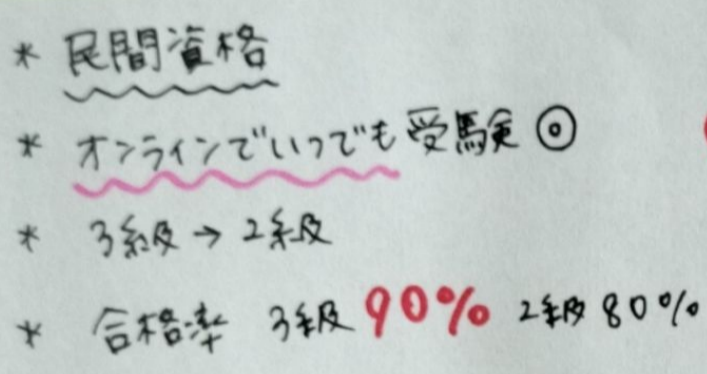 * 民間資格
* オンラインでいつでも受験◎
* 3級→2級
* 合格率 3級 90% 2級 80%